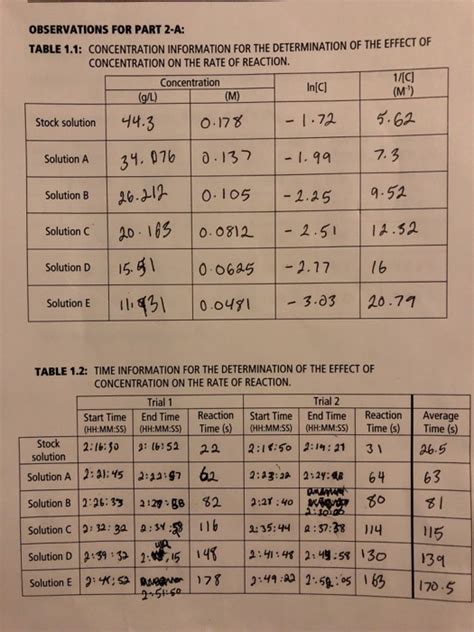 OBSERVATIONS FOR PART 2-A:
TABLE 1.1: CONCENTRATION INFORMATION FOR THE DETERMINATION OF THE EFFECT OF
CONCENTRATION ON THE RATE OF REACTION.
Concentration ln[C] 1/[C]
(g/L) (M) (M⁻¹)
Stock solution 44.3 0.178 -1.72 5.62
Solution A 34.076 0.137 -1.99 7.3
Solution B 26.212 0.105 -2.25 9.52
Solution C 20.163 0.0812 -2.51 12.32
Solution D 15.51 0.0625 -2.77 16
Solution E 11.931 0.0481 -3.03 20.79
TABLE 1.2: TIME INFORMATION FOR THE DETERMINATION OF THE EFFECT OF
CONCENTRATION ON THE RATE OF REACTION.
Trial 1 Trial 2
Start Time End Time Reaction Start Time End Time Reaction Average
(HH:MM:SS) (HH:MM:SS) Time (s) (HH:MM:SS) (HH:MM:SS) Time (s) Time (s)
Stock
solution 2:16:30 2:16:52 22 2:18:50 31 26.5
Solution A 2:21:45 62 2:23:22 64 63
Solution B 2:26:33 82 2:28:40 80 81
2:30:00
Solution C 2:32:32 116 2:35:44 2:37:38 114 115
Solution D 2:39:32 148 2:41:48 :58 130 139
Solution E 2:48:52 178 2:49:22 2:52:05 163 170.5
2:51:50